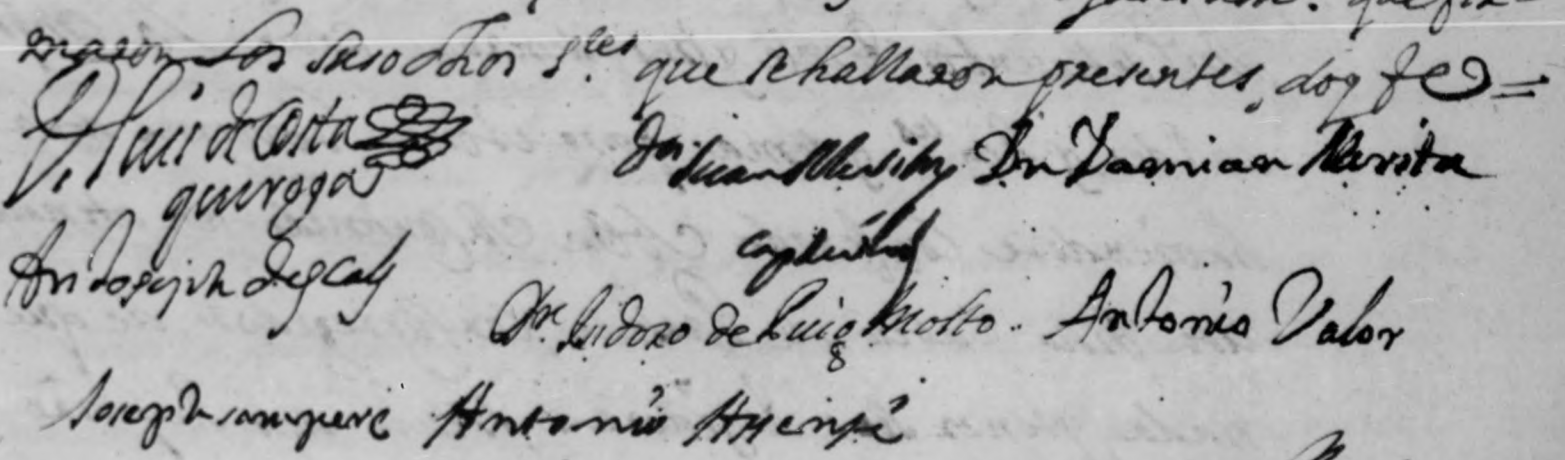 que fir-
maron los susodhos Sres que se hallaron presentes, doy fee =
D. Luis de Costa
quiroga
Dn Juan Dn Damian Merita
Dn Joseph descals
Dn Isidoro de Puigmolto. Antonio Valor
Joseph sempere Antonio Asensi